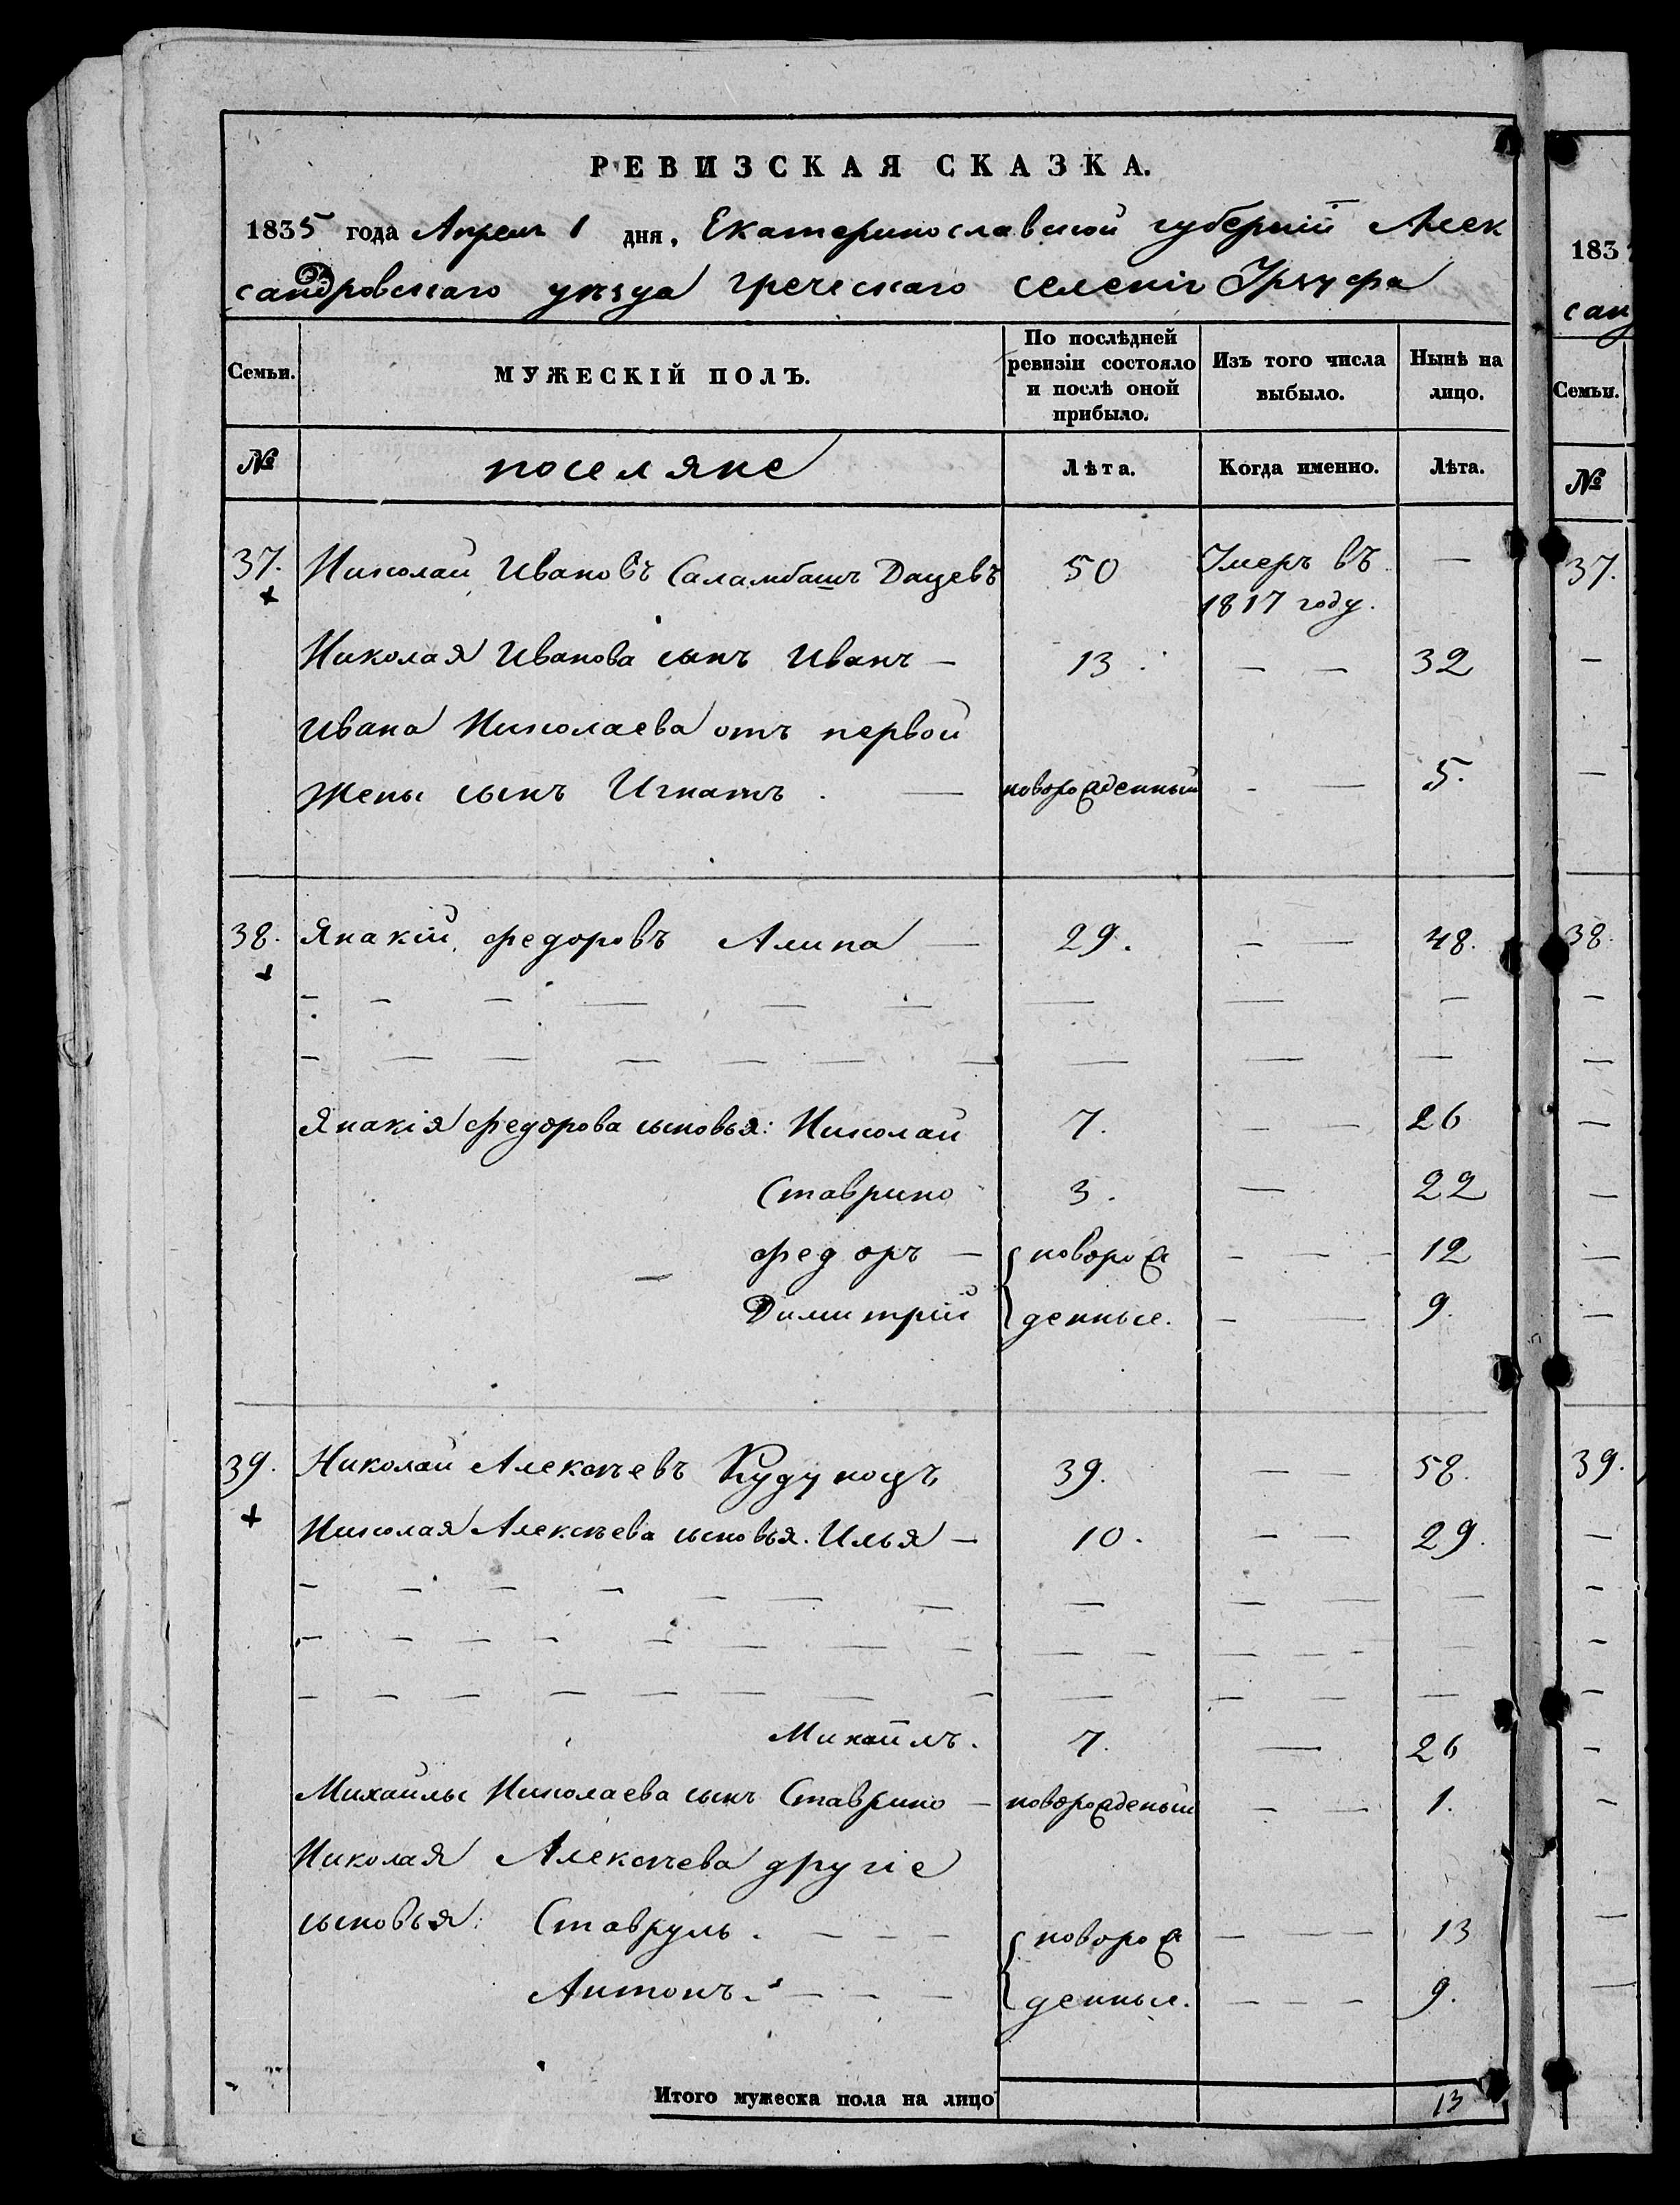 РЕВИЗСКАЯ СКАЗКА.
1835 года Апреля 1 дня, Екатеринославской губернїи Алек
сандровскаго уѣзда греческаго селенія Урзуфа
Семьи. МУЖЕСКІЙ ПОЛЪ. По послѣдней ревизіи состояло и послѣ оной прибыло. Изъ того числа выбыло. Нынѣ на лицо.
№ поселяне Лѣта. Когда именно. Лѣта.
37. Николай Ивановъ Саламбашъ Дацевъ 50 Умеръ въ —
1817 году.
Николая Иванова сынъ Иванъ — 13 — — 32
Ивана Николаева отъ первой
жены сынъ Игнатъ. — новорожденный - — 5.
38. Янакій федоровъ Алипа — 29. — — 48.
Янакія федорова сыновья: Николай 7. — — 26
Ставрино 3. — 22
федоръ — { новорож — — - 12
Димитрій { денные. — — 9.
39. Николай Алексѣевъ Кудукоцъ 39. — — 58.
Николая Алексѣева сыновья. Илья — 10. — — 29.
Михаїлъ. 7. — 26
Михаилы Николаева сынъ Ставрино — новорожденый — — 1.
Николая Алексѣева другіе
сыновья: Ставруль. — — — { новорож — — — 13
Антонъ. — — — { денные. — — — 9.
Итого мужеска пола на лицо 13
183
сан
Семьи.
№
37.
38.
39.